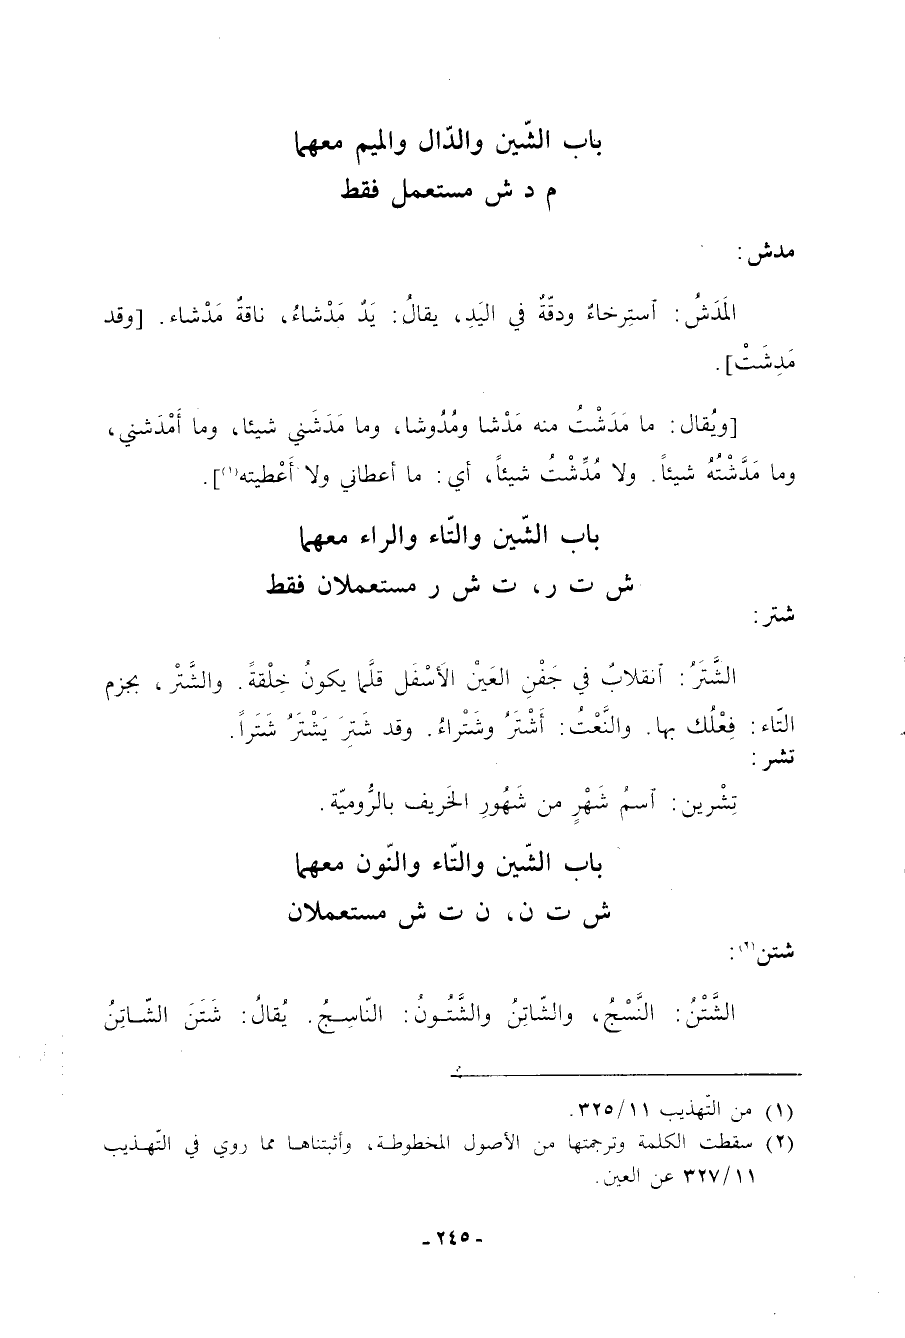 باب الشّين والدّال والميم معهما
م د ش مستعمل فقط
مدش :
المَدَشُ : آسترخاءٌ ودقّةٌ في اليَدِ، يقالُ : يَدٌ مَدْشاءُ، ناقةٌ مَدْشاء . [وقد
مَدِشَتْ] .
[ويُقال : ما مَدَشْتُ منه مَدْشا ومُدُوشا، وما مَدَشَني شيئا، وما أَمْدَشني،
وما مَدَّشْتُهُ شيئاً . ولا مُدِّشْتُ شيئاً، أي : ما أعطاني ولا أَعْطيته(١)] .
باب الشّين والتّاء والراء معهما
ش ت ر، ت ش ر مستعملان فقط
شتر :
الشَّتَرُ : آنقلابٌ في جَفْنِ العَيْنْ الأَسْفَل قلَّما يكونُ خِلْقةً . والشَّتْر، بجزم
التّاء : فِعْلُك بها . والنَّعْتُ : أَشْتَرُ وشَتْراءُ . وقد شَتِرَ يَشْتَرُ شَتَراً .
تشر :
تِشْرين : آسمُ شَهْرٍ من شَهُورِ الخَريف بالرُّوميّة .
باب الشّين والتّاء والنّون معهما
ش ت ن، ن ت ش مستعملان
شتن(٢) :
الشَّتْنُ : النَّسْجُ، والشّاتِنُ والشَّتُـونُ : النّاسِـجُ . يُقالُ : شَتَنَ الشّـاتِنُ
(١) من التّهذيب ٣٢٥/١١ .
(٢) سقطت الكلمة وترجمتها من الأصول المخطوطـة، وأثبتناهـا مما روي في التّهـذيب
٣٢٧/١١ عن العين .
- ٢٤٥ -